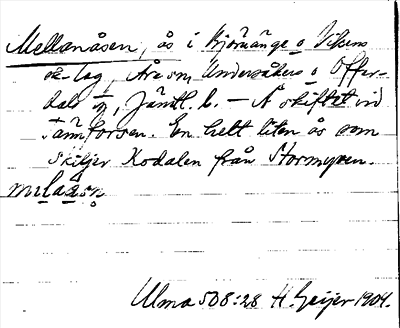 Mellanåsen, ås i Björnänge o Vikens
sk-lag, Åre sn, Undersåkers o Offer-
dals tg, Jämtl. l. – Å skiftet vid
Tännforsen. En helt liten ås som
skiljer Kodalen från Stormyren.
Ulma 508:28 H. Geijer 1904.